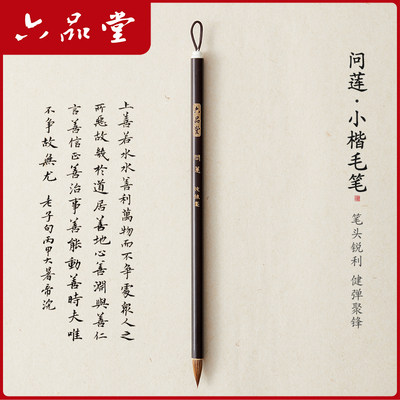 六品堂
问莲·小楷毛笔
笔头锐利 健弹聚锋
六品堂
問蓮
上善若水水善利萬物而不爭處衆人之
所惡故幾於道居善地心善淵與善仁
言善信正善治事善能動善時夫唯
不爭故無尤 老子句丙申大暑